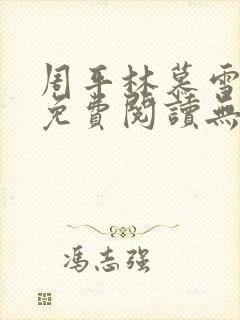 周平林慕雪
免費閱讀無
冯志强